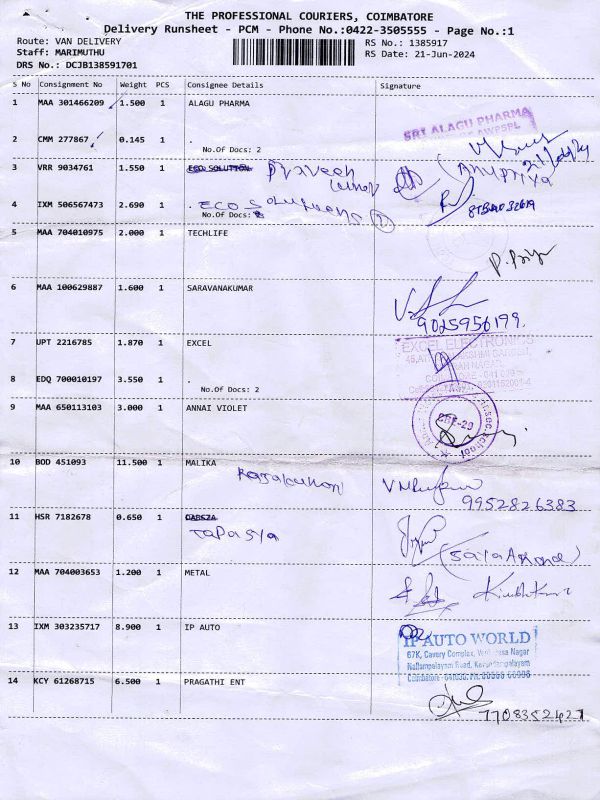 THE PROFESSIONAL COURIERS, COIMBATORE
Delivery Runsheet - PCM - Phone No.:0422-3505555 - Page No.:1
Route: VAN DELIVERY
RS No.: 1385917
Staff: MARIMUTHU
RS Date: 21-Jun-2024
DRS No.: DCJB138591701
S No Consignment No Weight PCS Consignee Details Signature
1 MAA 301466209 1.500 1 ALAGU PHARMA
SRI ALAGU PHARMA
2 CMM 277867 0.145 1 .
No.Of Docs: 2
3 VRR 9034761 1.550 1 ECO SOLUTION Praveen
Anupriya
4 IXM 506567473 2.690 1 . ECO Solutions
No.Of Docs:
5 MAA 704010975 2.000 1 TECHLIFE
P. Priya
6 MAA 100629887 1.600 1 SARAVANAKUMAR
9025956199
7 UPT 2216785 1.870 1 EXCEL
EXCEL ELECTRONICS
8 EDQ 700010197 3.550 1 .
No.Of Docs: 2
9 MAA 650113103 3.000 1 ANNAI VIOLET
CBE-20
10 BOD 451093 11.500 1 MALIKA
9952826383
11 HSR 7182678 0.650 1
Tapasya
12 MAA 704003653 1.200 1 METAL
13 IXM 303235717 8.900 1 IP AUTO
IP AUTO WORLD
67K, Cavery Complex, Nagar
Nallampalayam Road,
Coimbatore
14 KCY 61268715 6.500 1 PRAGATHI ENT
7708352427